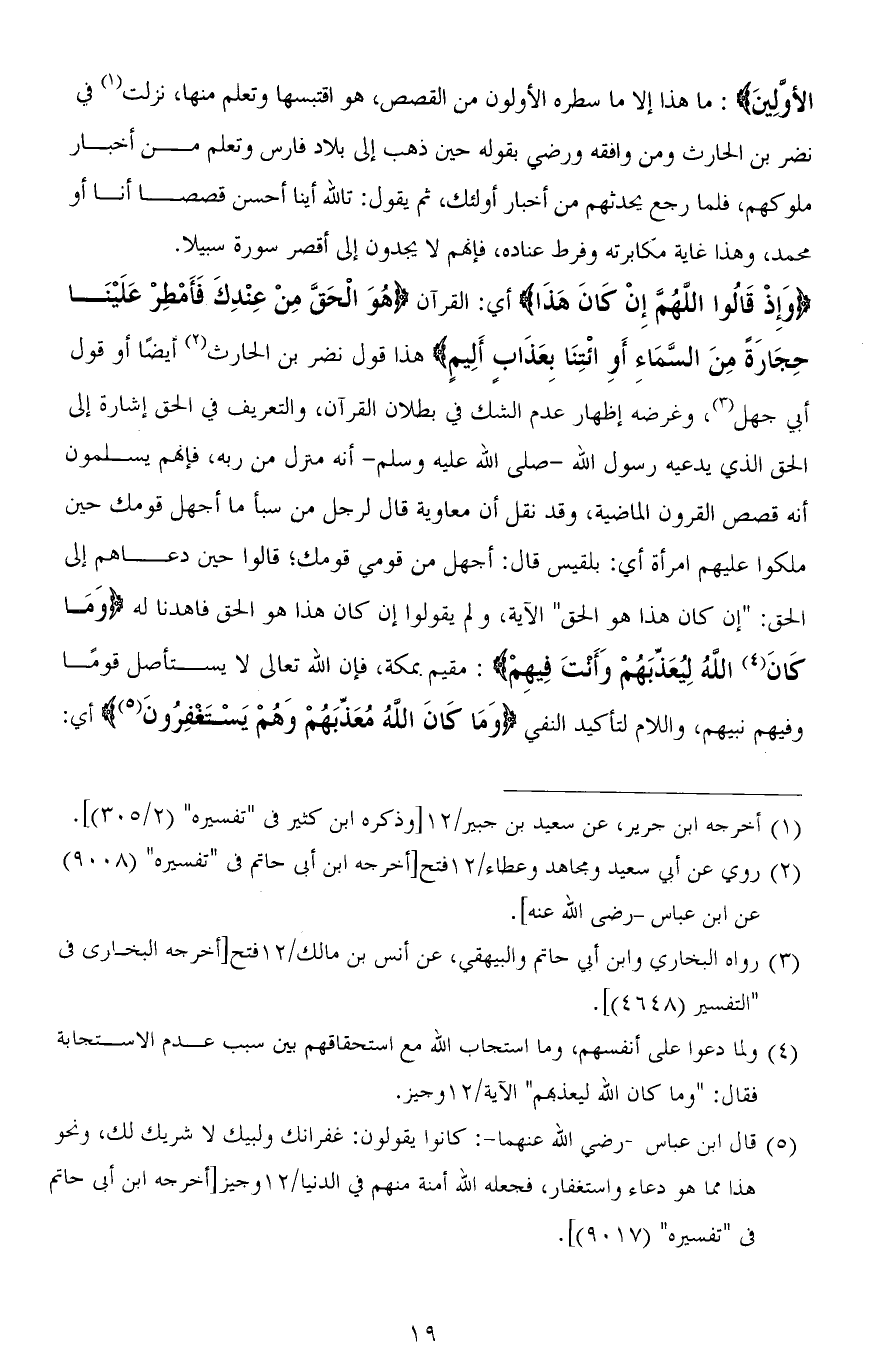 الأوَّلِينَ﴾ : ما هذا إلا ما سطره الأولون من القصص، هو اقتبسها وتعلم منها، نزلت(١) في
نضر بن الحارث ومن وافقه ورضي بقوله حين ذهب إلى بلاد فارس وتعلم مـــن أخبـــار
ملوكهم، فلما رجع يحدثهم من أخبار أولئك، ثم يقول: تالله أينا أحسن قصصـــا أنـــا أو
محمد، وهذا غاية مكابرته وفرط عناده، فإنهم لا يجدون إلى أقصر سورة سبيلا.
﴿وَإِذْ قَالُوا اللَّهُمَّ إِنْ كَانَ هَذَا﴾ أي: القرآن ﴿هُوَ الْحَقَّ مِنْ عِنْدِكَ فَأَمْطِرْ عَلَيْنَـــا
حِجَارَةً مِنَ السَّمَاءِ أَوِ ائْتِنَا بِعَذَابٍ أَلِيمٍ﴾ هذا قول نضر بن الحارث(٢) أيضًا أو قول
أبي جهل(٣)، وغرضه إظهار عدم الشك في بطلان القرآن، والتعريف في الحق إشارة إلى
الحق الذي يدعيه رسول الله –صلى الله عليه وسلم– أنه منزل من ربه، فإنهم يســلمون
أنه قصص القرون الماضية، وقد نقل أن معاوية قال لرجل من سبأ ما أجهل قومك حين
ملكوا عليهم امرأة أي: بلقيس قال: أجهل من قومي قومك؛ قالوا حين دعـــاهم إلى
الحق: "إن كان هذا هو الحق" الآية، ولم يقولوا إن كان هذا هو الحق فاهدنا له ﴿وَمَـــا
كَانَ(٤) اللَّهُ لِيُعَذِّبَهُمْ وَأَنْتَ فِيهِمْ﴾ : مقيم بمكة، فإن الله تعالى لا يســـتأصل قومًـــا
وفيهم نبيهم، واللام لتأكيد النفي ﴿وَمَا كَانَ اللَّهُ مُعَذِّبَهُمْ وَهُمْ يَسْـتَغْفِرُونَ(٥)﴾ أي:
(١) أخرجه ابن جرير، عن سعيد بن جبير/١٢[وذكره ابن كثير فى "تفسيره" (٣٠٥/٢)].
(٢) روي عن أبي سعيد ومجاهد وعطاء/١٢فتح[أخرجه ابن أبى حاتم فى "تفسيره" (٩٠٠٨)
عن ابن عباس –رضى الله عنه].
(٣) رواه البخاري وابن أبي حاتم والبيهقي، عن أنس بن مالك/١٢فتح[أخرجه البخـارى فى
"التفسير (٤٦٤٨)].
(٤) ولما دعوا على أنفسهم، وما استجاب الله مع استحقاقهم بين سبب عـــدم الاســـتجابة
فقال: "وما كان الله ليعذبهم" الآية/١٢وجيز.
(٥) قال ابن عباس -رضي الله عنهما–: كانوا يقولون: غفرانك ولبيك لا شريك لك، ونحو
هذا مما هو دعاء واستغفار، فجعله الله أمنة منهم في الدنيا/١٢وجيز[أخرجه ابن أبى حاتم
فى "تفسيره" (٩٠١٧)].
١٩